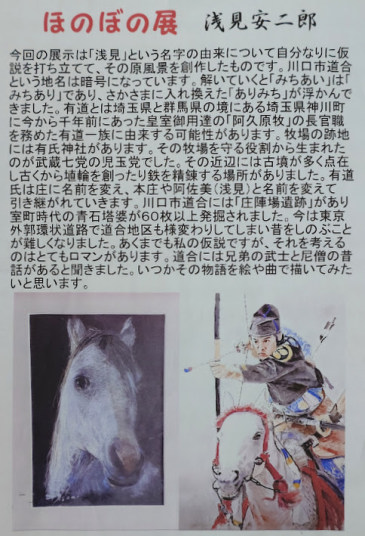 ほのぼの展 浅見安二郎
今回の展示は「浅見」という名字の由来について自分なりに仮
説を打ち立てて、その原風景を創作したものです。川口市道合
という地名は暗号になっています。解いていくと「みちあい」は「
みちあり」であり、さかさまに入れ換えた「ありみち」が浮かんで
きました。有道とは埼玉県と群馬県の境にある埼玉県神川町
に今から千年前にあった皇室御用達の「阿久原牧」の長官職
を務めた有道一族に由来する可能性があります。牧場の跡地
には有氏神社があります。その牧場を守る役割から生まれた
のが武蔵七党の児玉党でした。その近辺には古墳が多く点在
し古くから埴輪を創ったり鉄を精錬する場所がありました。有道
氏は庄に名前を変え、本庄や阿佐美（浅見）と名前を変えて
引き継がれていきます。川口市道合には「庄陣場遺跡」があり
室町時代の青石塔婆が60枚以上発掘されました。今は東京
外郭環状道路で道合地区も様変わりしてしまい昔をしのぶこと
が難しくなりました。あくまでも私の仮説ですが、それを考える
のはとてもロマンがあります。道合には兄弟の武士と尼僧の昔
話があると聞きました。いつかその物語を絵や曲で描いてみた
いと思います。